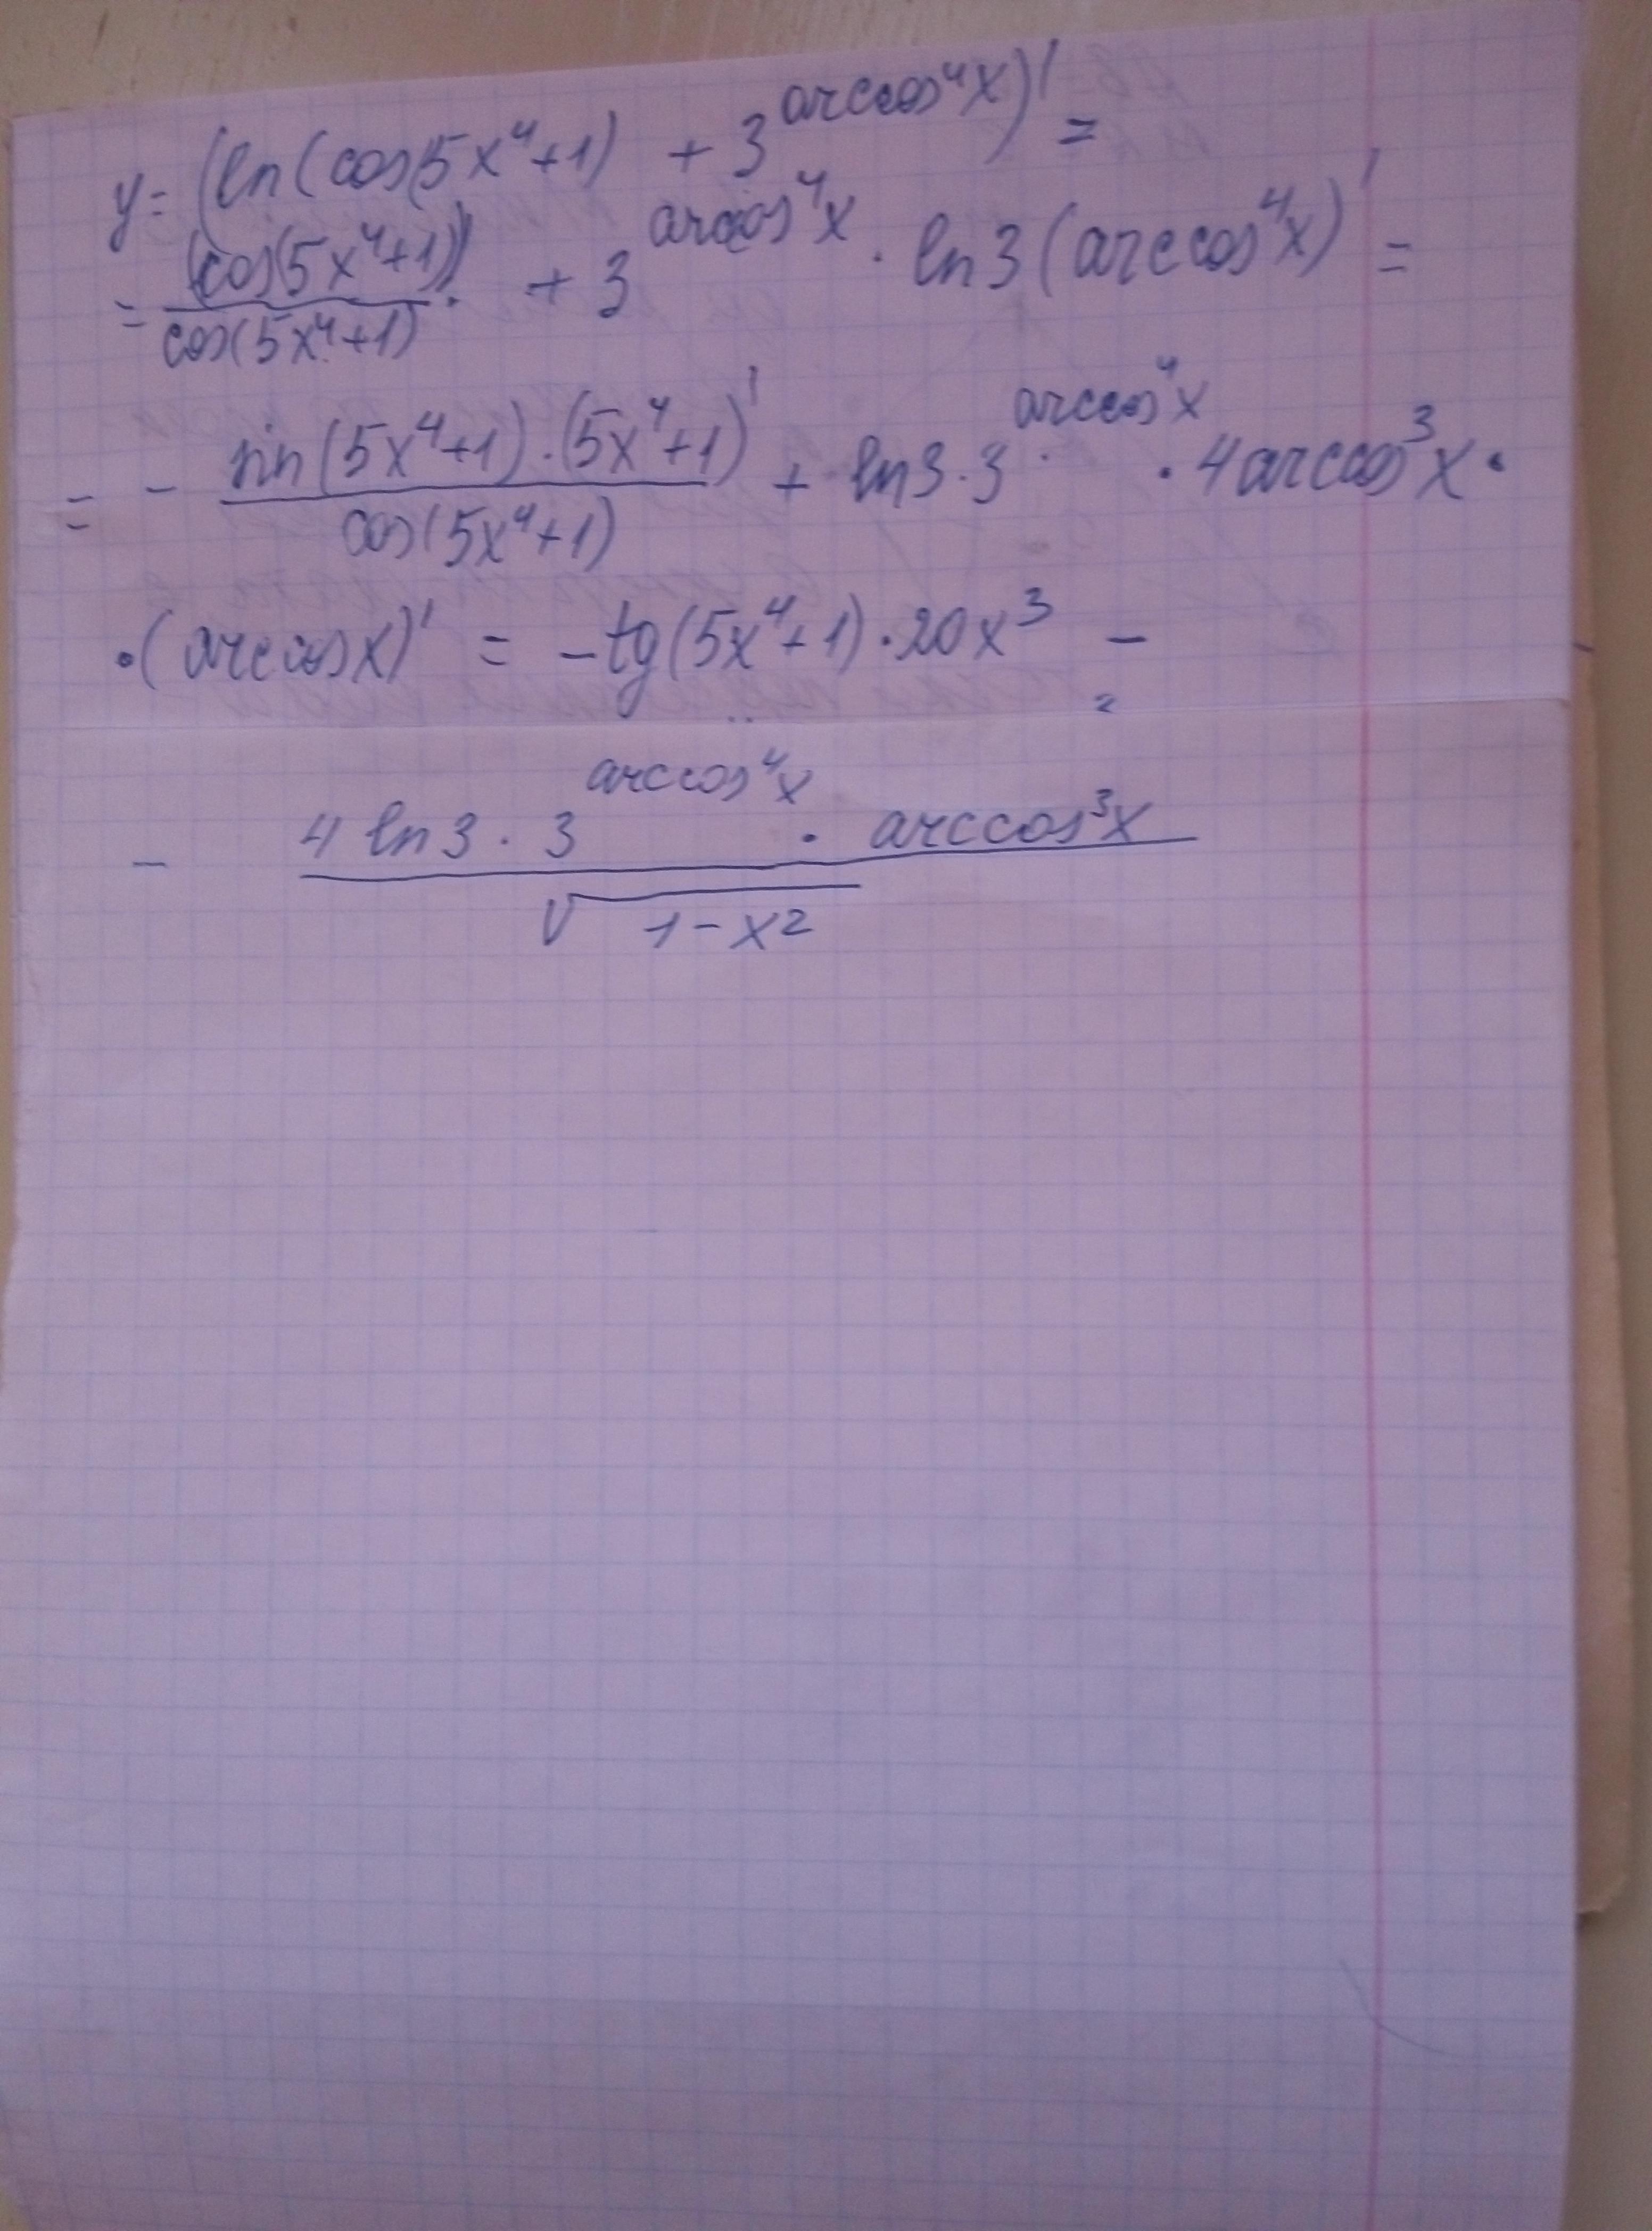 y = (ln(cos(5x⁴+1) + 3^(arccos⁴x))' =
= (cos(5x⁴+1))' / cos(5x⁴+1) · + 3^(arccos⁴x) · ln3 (arccos⁴x)' =
= - sin(5x⁴+1)·(5x⁴+1)' / cos(5x⁴+1) + ln3·3^(arccos⁴x) · 4arccos³x ·
·(arccosx)' = -tg(5x⁴+1)·20x³ -
- 4 ln3 · 3^(arccos⁴x) · arccos³x / √(1-x²)